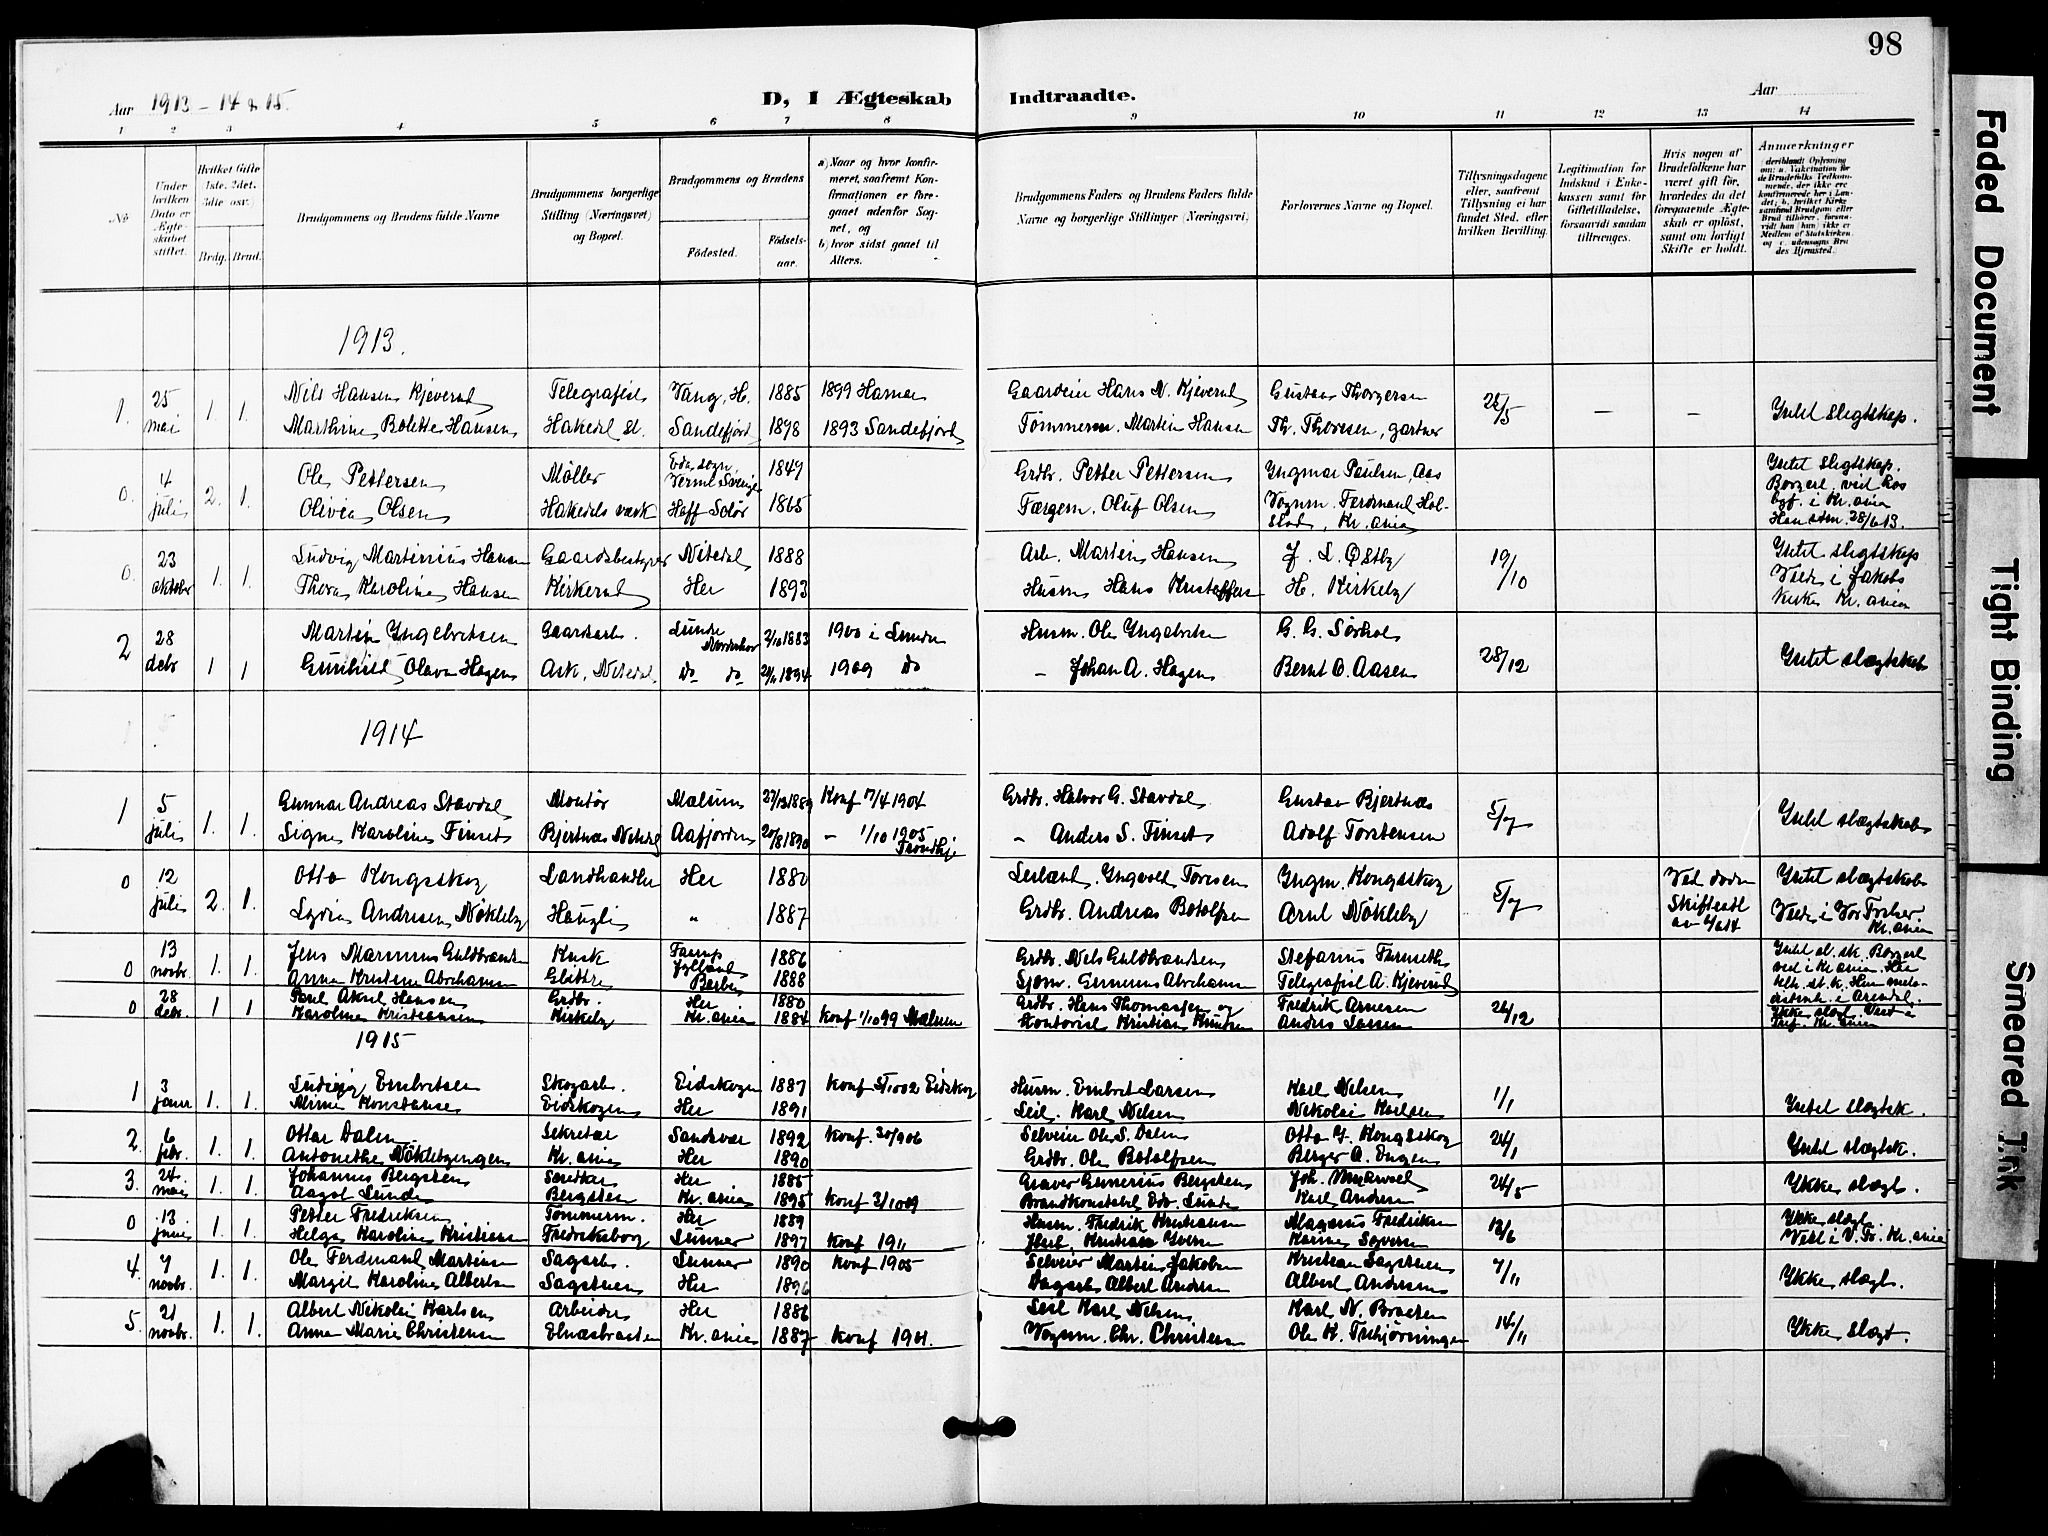 98
Aar 1913 - 14 & 15.
D, I Ægteskab Indtraadte.
Aar
1 2 3 4 5 6 7 8 9 10 11 12 13 14
No
Under hvilken Dato er Ægteskabet stiftet.
Hvilket Gifte 1ste, 2det, 3die osv.
Brdg. Brud.
Brudgommens og Brudens fulde Navne
Brudgommens borgerlige Stilling (Næringsvei) og Bopæl.
Brudgommens og Brudens
Fødested.
Fødselsaar.
a) Naar og hvor konfirmeret, saafremt Konfirmationen er foregaaet udenfor Sognet, og
b) hvor sidst gaaet til Alters.
Brudgommens Faders og Brudens Faders fulde Navne og borgerlige Stillinger (Næringsvei)
Forlovernes Navne og Bopæl.
Tillysningsdagene eller, saafremt Tillysning ei har fundet Sted, efter hvilken Bevilling.
Legitimation for Indskud i Enkekassen samt for Giftetilladelse, forsaavidt saadan tiltrænges.
Hvis nogen af Brudefolkene har været gift før, hvorledes da det foregaaende Ægteskab er opløst, samt om lovligt Skifte er holdt.
Anmærkninger
1913.
1. 25 mai 1. 1. Nils Hansen Kjeverud Telegrafist Vang, H. 1885 1899 Hamar Gaardeier Hans N. Kjeverud Gustav Thorgersen 25/5 – – Intet slegtskap.
Marthine Bolette Hansen Hakedal st. Sandefjord 1898 1893 Sandefjord Tømmerm. Martin Hansen Th. Thoresen, gartner
0. 4 juli 2. 1. Ole Pettersen Møller Eda sogn, Verml. Sverige 1849 Grdbr. Petter Pettersen Yngmar Paulsen, Aas Intet slegtskap.
Olivia Olsen Hakedals værk Hoff Solør 1865 Færgem. Oluf Olsen Vognm. Ferdinand Holstad, Kr.ania Borgerl. viet hos byf. i Kr.ania 28/6 13.
0. 23 oktober 1. 1. Ludvig Martinius Hansen Gaardsbestyrer Nitedal 1888 Arb. Martin Hansen J. L. Østby 19/10 Intet slegtskap
Thora Karoline Hansen Kirkerud Her 1893 Husm. Hans Kristoffersen H. Kirkeby Viede i Jakobs kirke Kr.ania
2 28 debr 1 1 Martin Yngebretsen Gaardarb. Lunde Norderhov 2/10 1883 1900 i Lunde Husm. Ole Yngebretsen G. G. Sørhol 28/12 Intet slægtskab
Gunhild Olava Hagen Ask, Nitedal. do do 1894 1909 do – Johan A. Hagen Bernt O. Aasen
1914
1 5 juli 1. 1. Gunnar Andreas Stavdal Montør Modum 27/12 1889 Konf 17/4 1904 Grdbr. Halvor G. Stavdal Gustav Bjertnæs 5/7 Intet slægtskab
Signe Karoline Finset Bjertnæs Nitedal Aafjorden 20/8 1890 – 1/10 1905 Trondhj Anders S. Finset Adolf Torstensen
0 12 juli 2. 1. Otto Kongsskog Landhandler Her 1880 Leilænd. Yngvald Toresen Yngm. Kongsskog 5/7 Ved døden Skifteatt av Intet slægtskab
Andrisen Nøkleby Haugli " 1887 Grdbr. Andreas Botolfsen Arnt Nøkleby Viede i Vor Frelser. Kr.ania
0 13 novbr. 1. 1. Jens Marinus Guldbrandsen Kusk Jylland 1886 Grdbr. Nils Guldbrandsen
Anna Kristine Abrahamsen Glittre Barbu 1888 Sjøm. Gunnus Abrahamsen Telegrafist A. Kjeverud
0 28 debr. 1 1 Paul Aksel Hansen Grdbr. Her 1880 Grdbr. Hans Thomassen og Fredrik Arnesen 26/12
Karoline Kristiansen Kirkeby Kr.ania 1884 Konf 1/10 99 Kontorist Kristian Knutsen Anders Larsen
1915
1 3 janr 1. 1. Ludvig Embretsen Skogarb. Eidskogen 1887 Konf 5/10 02 Eidskog Husm. Embret Larsen Karl Nilsen 1/1 Intet slægtsk.
Mina Konstanse Eidskogen Her 1891 Leil. Karl Nilsen Nikolai Karlsen
2. 6 febr. 1. 1. Ottar Dalen Sekretær Sandsvær 1892 Konf. 30/9 06 Selveier Ole S. Dalen Otto Y. Kongsskog 24/1 Intet slægtsk.
Antonethe Nøklebyengen Kr.ania Her 1890 Grdbr. Ole Botolfsen Berger A. Engen
3. 24. mai 1. 1. Johannes Bergsten Her 1885 Graver Gunerius Bergsten 24/5 Ykke slægt.
Aagot Lunde Bergsten Kr.ania 1895 Konf 3/10 09 Brandkonstabel Edv. Lunde Karl Andersen
0 13. juni 1. 1. Petter Fredriksen Tømmerm. Her 1889 Husm. Fredrik Kristiansen Magnus Fredriksen 13/6 Ykke slægt.
Helga Karoline Kristiansen Fredriksborg Lunner 1897 Konf 1911 Kristian Iversen Karine Syversen Viet i V. Fr. Kr.ania
4. 7 novbr. 1. 1. Ole Ferdinand Martinsen Sagarb. Lunner 1890 Konf 1905 Selveier Martin Jakobsen Kristian Sagstuen 7/11 Ykke slægt.
Margit Karoline Albertsen Sagstuen Her 1896 Dagarb. Albert Andersen Albert Andersen
5. 21 novbr. 1. 1. Albert Nikolai Karlsen Arbeider Her 1886 Leil Karl Nilsen Karl N. Braaten 14/11 Ykke slægt.
Anna Marie Christensen Elnæsbraaten Kr.ania 1887 Konf 1901. Vognm. Chr. Christensen Ole K.
Faded Document
Tight Binding
Smeared Ink